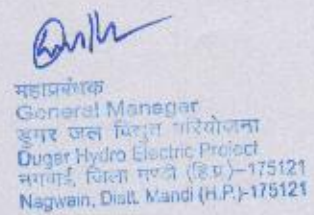 महाप्रबंधक
General Manager
डुगर जल विद्युत परियोजना
Dugar Hydro Electric Project
नगवाईं, जिला मण्डी (हि.प्र.)–175121
Nagwain, Distt. Mandi (H.P.)-175121